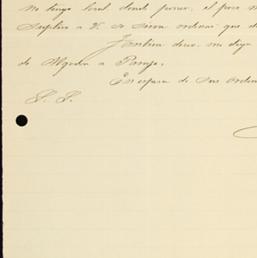 no tengo local donde poner, el poco
suplico a V. se sirva ordenar que
Tambien decir me
de Algodon a Pampa.
En espera de sus ordenes
S. S.